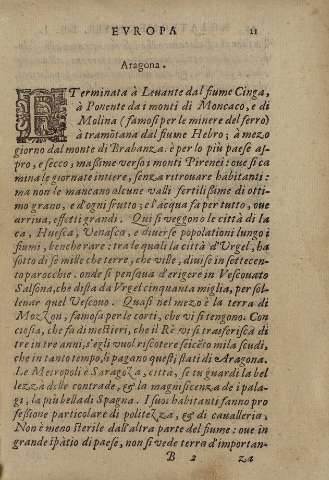 EVROPA 11
Aragona.
RTerminata à Leuante dal fiume Cinga,
à Ponente da i monti di Moncaco, e di
Molina (famosi per le minere del ferro)
à tramõtana dal fiume Hebro; à mezo
giorno dal monte di Brabanza. è per lo più paese as-
pro, e secco; maßime verso i monti Pirenei: oue si ca
mina le giornate intiere, senza ritrouare habitanti:
ma non le mancano alcune valli fertilißime di otti
mo grano, e d'ogni frutto; e l'acqua fa per tutto, oue
arriua, effetti grandi. Qui si veggono le città di Ia
ca, Huesca, Venasca, e diuerse popolationi lungo i
fiumi, benche rare: tra le quali la città d'Vrgel, ha
sotto di se mille che terre, che ville, diuise in settecen-
to parocchie. onde si pensaua d'erigere in Vescouato
Salsona, che dista da Vrgel cinquanta miglia, per sol-
leuar quel Vescouo. Quasi nel mezo è la terra di
Mozzon, famosa per le corti, che vi si tengono. Con
ciosia, che fa di mestieri, che il Rè vi si trasferisca di
tre in tre anni, s'egli vuol riscotere seicẽto mila scudi,
che in tanto tempo, li pagano questi stati di Aragona.
Le Metropoli è Saragoza, città, se tu guardi la bel
lezza delle contrade, & la magnificenza de i pala-
gi, la più bella di Spagna. I suoi habitanti fanno pro
feßione particolare di politezza, & di caualleria.
Non è meno sterile dall'altra parte del fiume: oue in
grande spàtio di paese, non si vede terra d'importan-
B 2 za